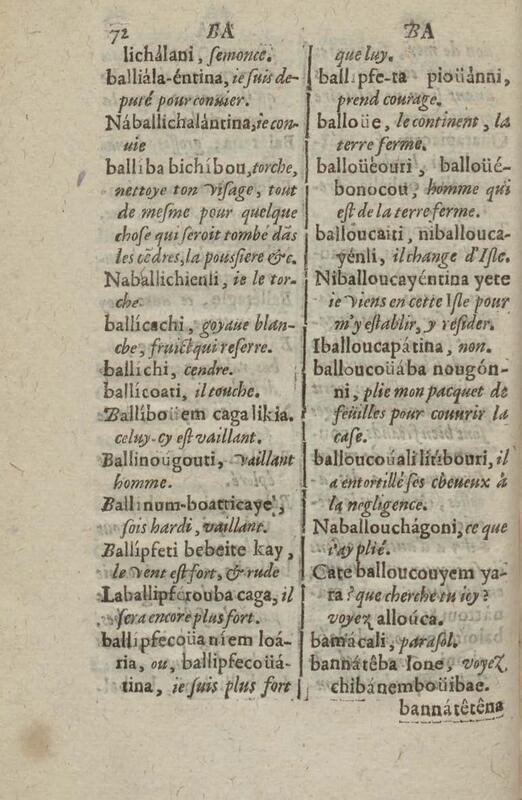 72 BA BA
lichálani, semonce.
balliála-éntina, ie suis de-
puté pour conuier.
Náballichalántina, ie con-
uie
balliba bichíbou, torche,
nettoye ton visage, tout
de mesme pour quelque
chose qui seroit tombé dās
les cẽdres, la poussiere &c.
Naballichienli, ie le tor-
che.
ballícachi, goyaue blan-
che, fruict qui reserre.
ballichi, cendre.
ballícoati, il touche.
Ballíboüem caga likia.
celuy-cy est vaillant.
Ballinougouti, vaillant
homme.
Ballinum-boatticayé,
sois hardi, vaillant.
Ballípfeti bebeite kay,
le vent est fort, & rude
Laballipferouba caga, il
sera encore plus fort.
ballipfecoüa níem loá-
ria, ou, ballipfecoüá-
tina, ie suis plus fort
que luy.
ballipfe-ta pioüánni,
prend courage.
balloüe, le continent, la
terre ferme.
balloüéouri, balloüé-
bonocou, homme qui
est de la terre ferme.
balloucaiti, niballouca-
yénli, il change d'Isle.
Niballoucayéntina yete
ie viens en cette Isle pour
m'y establir, y résider.
Iballoucapátina, non.
balloucoüába nougón-
ni, plie mon pacquet de
feüilles pour couurir la
case.
balloucoüali litébouri, il
a entortillé ses cheueux à
la negligence.
Naballouchágoni, ce que
i'ay plié.
Cate balloucouyem ya-
ra? que cherche tu icy?
voyez allouca.
banácali, parasol.
bannátêba lone, voyez
chibánemboüibae.
bannátêtêna